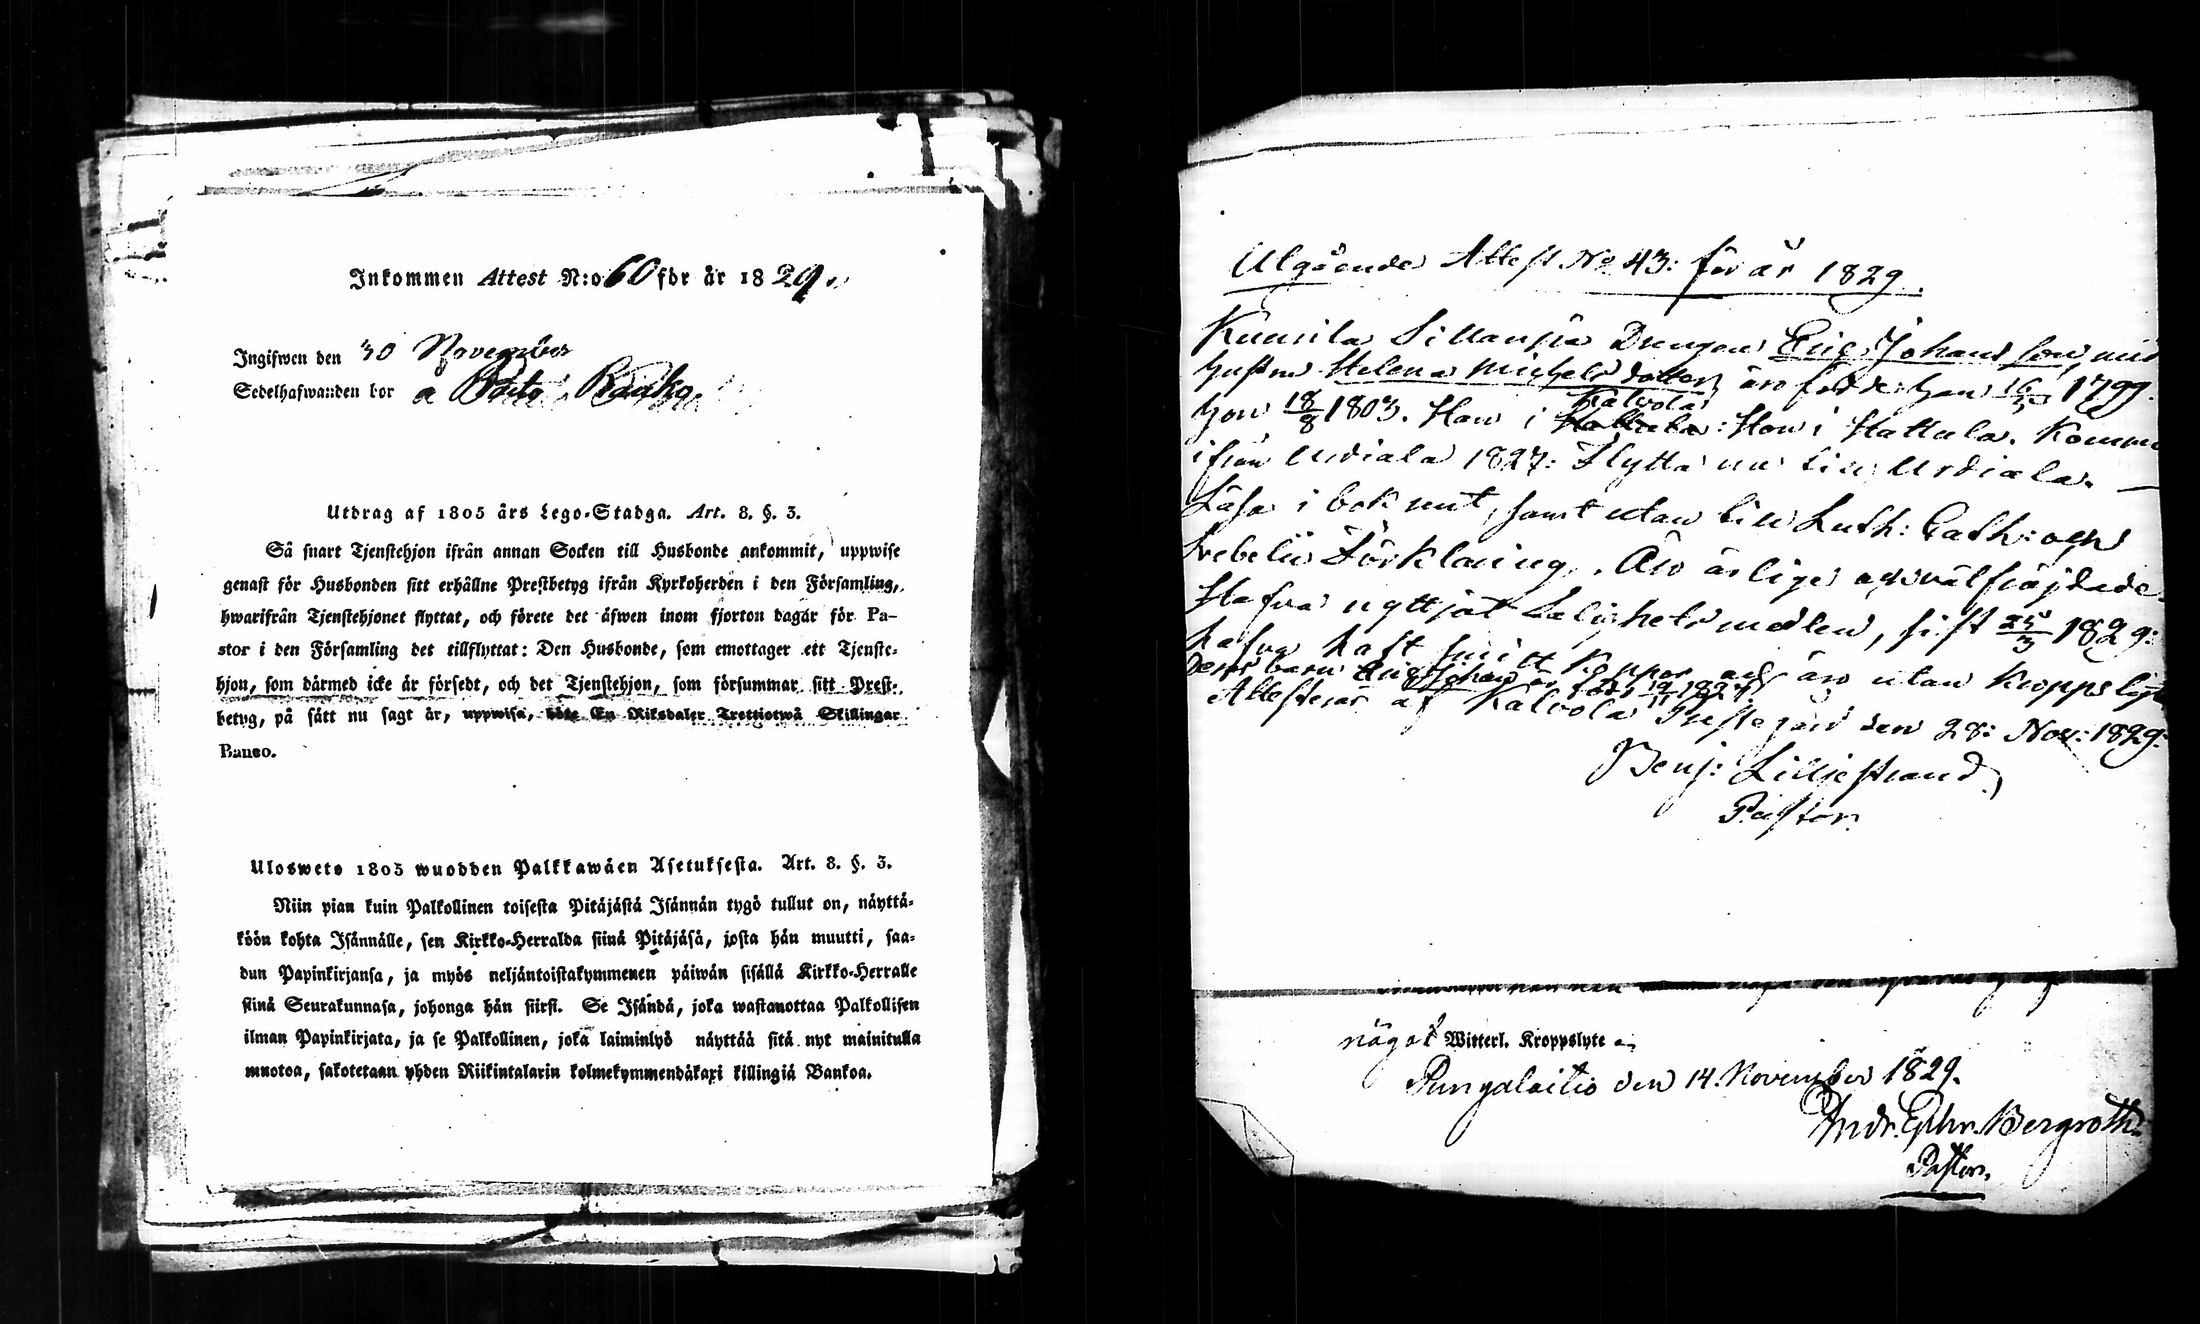 Inkommen Attest N:o 60 för år 1829.
Ingifwen den 30 November
Sedelhafwanden bor å
Utdrag af 1805 års Lego-Stadga. Art. 8. §. 3.
Så snart Tjenstehjon ifrån annan Socken till Husbonde ankommit, uppwise
genast för Husbonden sitt erhållne Prestbetyg ifrån Kyrkoherden i den Församling,
hwarifrån Tjenstehjonet flyttat, och förete det äfwen inom fjorton dagar för Pa-
stor i den Församling det tillflyttat: Den Husbonde, som emottager ett Tjenste-
hjon, som därmed icke är försedt, och det Tjenstehjon, som försummar sitt Prest-
betyg, på sätt nu sagt är, uppwisa, böte En Riksdaler Trettiotwå Skillingar
Banco.
Ulosweto 1805 wuodden Palkkawäen Asetuksesta. Art. 8. §. 3.
Niin pian kuin Palkollinen toisesta Pitäjästä Isännän tygö tullut on, näyttä-
köön kohta Isännälle, sen Kirkko-Herralda siinä Pitäjäsä, josta hän muutti, saa-
dun Papinkirjansa, ja myös neljäntoistakymmenen päiwän sisällä Kirkko-Herralle
siinä Seurakunnasa, johonga hän siirsi. Se Isändä, joka wastanottaa Palkollisen
ilman Papinkirjata, ja se Palkollinen, joka laiminlyö näyttää sitä nyt mainitulla
muotoa, sakotetaan yhden Riikintalarin kolmekymmendäkaxi killingiä Bankoa.
Utgående Attest No 43: för år 1829.
Kuurila Sillanpää Drengen Eric Johans son, med
hustru Helena Michels dotter, äro födde: han 16/3 1799.
Kalvola
hon 18/8 1803. Han i Hattula: Hon i Hattula. Komma
ifrån Urdiala 1827: Flytta nu till Urdiala.
Läsa i bok nöt, samt utan till Luth: Cath: och
Svebelii Förklaring. Äro ärlige och välfräjdade.
Hafva nyttjat Salighets medlen, sist 25/3 1829:
hafva haft smitt Koppor och äro utan kroppslyte
Deras barn Eric Johan är född 19/11 1827.
Attesterar af Kalvola Prestegård den 28: Nov: 1829:
Benj: Lilljestrand,
Pastor.
något Witterl. Kroppslyte
Pungalaitio den 14. November 1829.
Andr. Ephr. Bergroth.
Pastor.